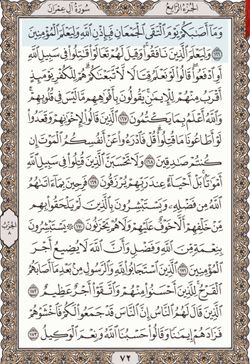 الجزء الرابع
سورة آل عمران
وَمَآ أَصَٰبَكُمْ يَوْمَ ٱلْتَقَى ٱلْجَمْعَانِ فَبِإِذْنِ ٱللَّهِ وَلِيَعْلَمَ ٱلْمُؤْمِنِينَ
١٦٦ وَلِيَعْلَمَ ٱلَّذِينَ نَافَقُوا۟ وَقِيلَ لَهُمْ تَعَالَوْا۟ قَٰتِلُوا۟ فِى سَبِيلِ ٱللَّهِ
أَوِ ٱدْفَعُوا۟ قَالُوا۟ لَوْ نَعْلَمُ قِتَالًا لَّٱتَّبَعْنَٰكُمْ هُمْ لِلْكُفْرِ يَوْمَئِذٍ
أَقْرَبُ مِنْهُمْ لِلْإِيمَٰنِ يَقُولُونَ بِأَفْوَٰهِهِم مَّا لَيْسَ فِى قُلُوبِهِمْ
وَٱللَّهُ أَعْلَمُ بِمَا يَكْتُمُونَ ١٦٧ ٱلَّذِينَ قَالُوا۟ لِإِخْوَٰنِهِمْ وَقَعَدُوا۟
لَوْ أَطَاعُونَا مَا قُتِلُوا۟ قُلْ فَٱدْرَءُوا۟ عَنْ أَنفُسِكُمُ ٱلْمَوْتَ إِن
كُنتُمْ صَٰدِقِينَ ١٦٨ وَلَا تَحْسَبَنَّ ٱلَّذِينَ قُتِلُوا۟ فِى سَبِيلِ ٱللَّهِ
أَمْوَٰتًۢا بَلْ أَحْيَآءٌ عِندَ رَبِّهِمْ يُرْزَقُونَ ١٦٩ فَرِحِينَ بِمَآ ءَاتَىٰهُمُ
ٱللَّهُ مِن فَضْلِهِۦ وَيَسْتَبْشِرُونَ بِٱلَّذِينَ لَمْ يَلْحَقُوا۟ بِهِم
مِّنْ خَلْفِهِمْ أَلَّا خَوْفٌ عَلَيْهِمْ وَلَا هُمْ يَحْزَنُونَ ١٧٠ يَسْتَبْشِرُونَ
بِنِعْمَةٍ مِّنَ ٱللَّهِ وَفَضْلٍ وَأَنَّ ٱللَّهَ لَا يُضِيعُ أَجْرَ
ٱلْمُؤْمِنِينَ ١٧١ ٱلَّذِينَ ٱسْتَجَابُوا۟ لِلَّهِ وَٱلرَّسُولِ مِنۢ بَعْدِ مَآ أَصَابَهُمُ
ٱلْقَرْحُ لِلَّذِينَ أَحْسَنُوا۟ مِنْهُمْ وَٱتَّقَوْا۟ أَجْرٌ عَظِيمٌ ١٧٢
ٱلَّذِينَ قَالَ لَهُمُ ٱلنَّاسُ إِنَّ ٱلنَّاسَ قَدْ جَمَعُوا۟ لَكُمْ فَٱخْشَوْهُمْ
فَزَادَهُمْ إِيمَٰنًا وَقَالُوا۟ حَسْبُنَا ٱللَّهُ وَنِعْمَ ٱلْوَكِيلُ ١٧٣
٧٢